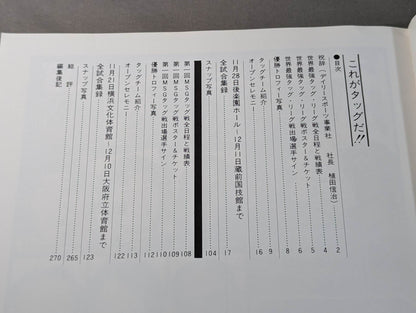 これがタッグだ!!
●目次
祝辞(デイリースポーツ事業社 社長 植田信治)……2
世界最強タッグ・リーグ戦全日程と戦績表……4
世界最強タッグ・リーグ戦ポスター&チケット……5
世界最強タッグ・リーグ戦出場選手サイン……6
優勝トロフィー写真……8
オープンセレモニー……9
タッグチーム紹介……16
11月28日後楽園ホール〜12月11日蔵前国技館まで
全試合集録……17
スナップ写真……104
第一回MSGタッグ戦全日程と戦績表……108
第一回MSGタッグ戦ポスター&チケット……109
第一回MSGタッグ戦出場選手サイン……110
優勝トロフィー写真……112
オープンセレモニー……113
タッグチーム紹介……122
11月21日横浜文化体育館〜12月10日大阪府立体育館まで
全試合集録……123
スナップ写真
総評……265
編集後記……270